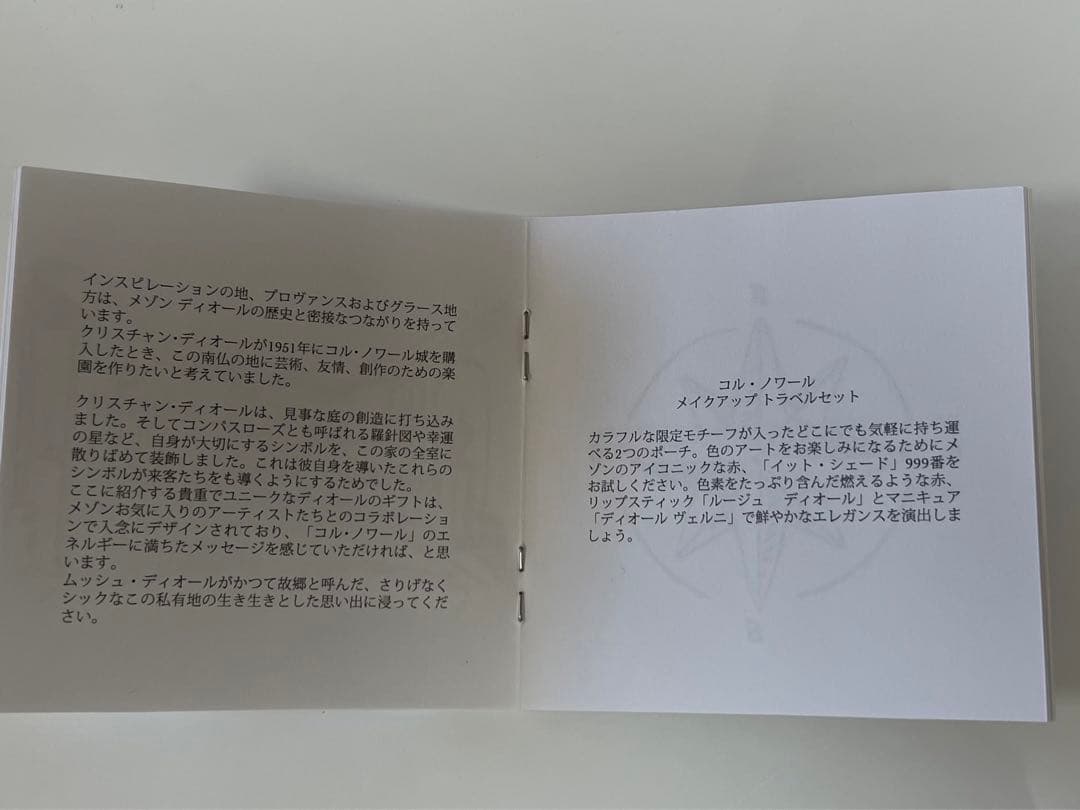 インスピレーションの地、プロヴァンスおよびグラース地
方は、メゾン ディオールの歴史と密接なつながりを持って
います。
クリスチャン・ディオールが1951年にコル・ノワール城を購
入したとき、この南仏の地に芸術、友情、創作のための楽
園を作りたいと考えていました。
クリスチャン・ディオールは、見事な庭の創造に打ち込み
ました。そしてコンパスローズとも呼ばれる羅針図や幸運
の星など、自身が大切にするシンボルを、この家の全室に
散りばめて装飾しました。これは彼自身を導いたこれらの
シンボルが来客たちをも導くようにするためでした。
ここに紹介する貴重でユニークなディオールのギフトは、
メゾンお気に入りのアーティストたちとのコラボレーショ
ンで入念にデザインされており、「コル・ノワール」のエ
ネルギーに満ちたメッセージを感じていただければ、と思
います。
ムッシュ・ディオールがかつて故郷と呼んだ、さりげなく
シックなこの私有地の生き生きとした思い出に浸ってくだ
さい。
コル・ノワール
メイクアップ トラベルセット
カラフルな限定モチーフが入ったどこにでも気軽に持ち運
べる2つのポーチ。色のアートをお楽しみになるためにメ
ゾンのアイコニックな赤、「イット・シェード」999番を
お試しください。色素をたっぷり含んだ燃えるような赤、
リップスティック「ルージュ　ディオール」とマニキュア
「ディオール ヴェルニ」で鮮やかなエレガンスを演出しま
しょう。